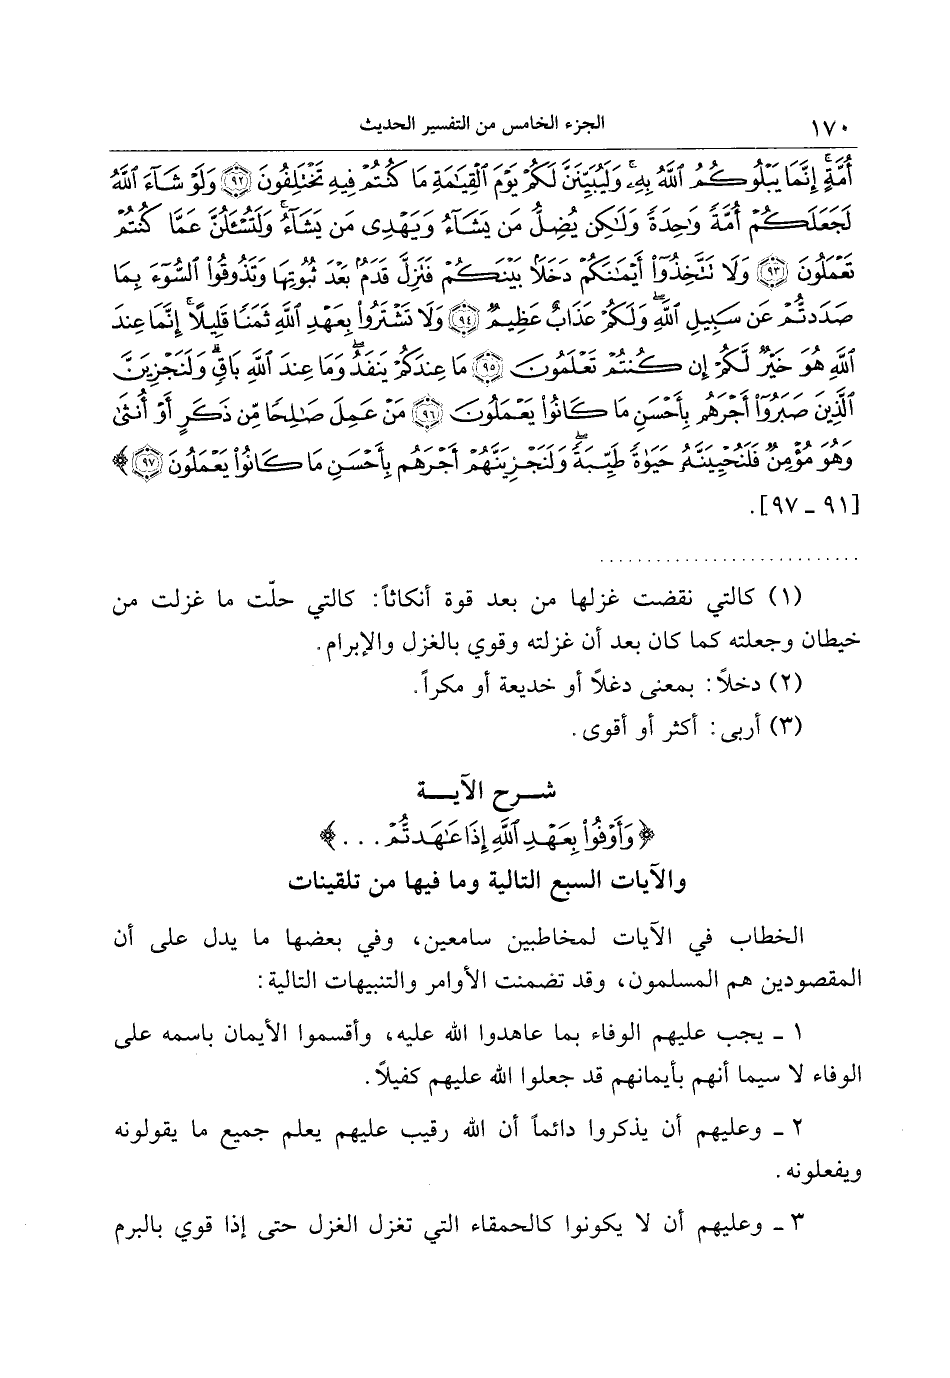 ١٧٠ الجزء الخامس من التفسير الحديث
أُمَّةٍ إِنَّمَا يَبْلُوكُمُ ٱللَّهُ بِهِۦ وَلَيُبَيِّنَنَّ لَكُمْ يَوْمَ ٱلْقِيَٰمَةِ مَا كُنتُمْ فِيهِ تَخْتَلِفُونَ ٩٢ وَلَوْ شَآءَ ٱللَّهُ
لَجَعَلَكُمْ أُمَّةً وَٰحِدَةً وَلَٰكِن يُضِلُّ مَن يَشَآءُ وَيَهْدِى مَن يَشَآءُ وَلَتُسْـَٔلُنَّ عَمَّا كُنتُمْ
تَعْمَلُونَ ٩٣ وَلَا تَتَّخِذُوٓا۟ أَيْمَٰنَكُمْ دَخَلًۢا بَيْنَكُمْ فَتَزِلَّ قَدَمٌۢ بَعْدَ ثُبُوتِهَا وَتَذُوقُوا۟ ٱلسُّوٓءَ بِمَا
صَدَدتُّمْ عَن سَبِيلِ ٱللَّهِ وَلَكُمْ عَذَابٌ عَظِيمٌ ٩٤ وَلَا تَشْتَرُوا۟ بِعَهْدِ ٱللَّهِ ثَمَنًا قَلِيلًا إِنَّمَا عِندَ
ٱللَّهِ هُوَ خَيْرٌ لَّكُمْ إِن كُنتُمْ تَعْلَمُونَ ٩٥ مَا عِندَكُمْ يَنفَدُ وَمَا عِندَ ٱللَّهِ بَاقٍ وَلَنَجْزِيَنَّ
ٱلَّذِينَ صَبَرُوٓا۟ أَجْرَهُم بِأَحْسَنِ مَا كَانُوا۟ يَعْمَلُونَ ٩٦ مَنْ عَمِلَ صَٰلِحًا مِّن ذَكَرٍ أَوْ أُنثَىٰ
وَهُوَ مُؤْمِنٌ فَلَنُحْيِيَنَّهُۥ حَيَوٰةً طَيِّبَةً وَلَنَجْزِيَنَّهُمْ أَجْرَهُم بِأَحْسَنِ مَا كَانُوا۟ يَعْمَلُونَ ٩٧ ﴾
[٩١ ـ ٩٧].
(١) كالتي نقضت غزلها من بعد قوة أنكاثاً: كالتي حلّت ما غزلت من
خيطان وجعلته كما كان بعد أن غزلته وقوي بالغزل والإبرام.
(٢) دخلاً: بمعنى دغلاً أو خديعة أو مكراً.
(٣) أربى: أكثر أو أقوى.
شـرح الآيـة
﴿ وَأَوْفُوا۟ بِعَهْدِ ٱللَّهِ إِذَا عَٰهَدتُّمْ . . . ﴾
والآيات السبع التالية وما فيها من تلقينات
الخطاب في الآيات لمخاطبين سامعين، وفي بعضها ما يدل على أن
المقصودين هم المسلمون، وقد تضمنت الأوامر والتنبيهات التالية:
١ ـ يجب عليهم الوفاء بما عاهدوا الله عليه، وأقسموا الأيمان باسمه على
الوفاء لا سيما أنهم بأيمانهم قد جعلوا الله عليهم كفيلاً.
٢ ـ وعليهم أن يذكروا دائماً أن الله رقيب عليهم يعلم جميع ما يقولونه
ويفعلونه.
٣ ـ وعليهم أن لا يكونوا كالحمقاء التي تغزل الغزل حتى إذا قوي بالبرم